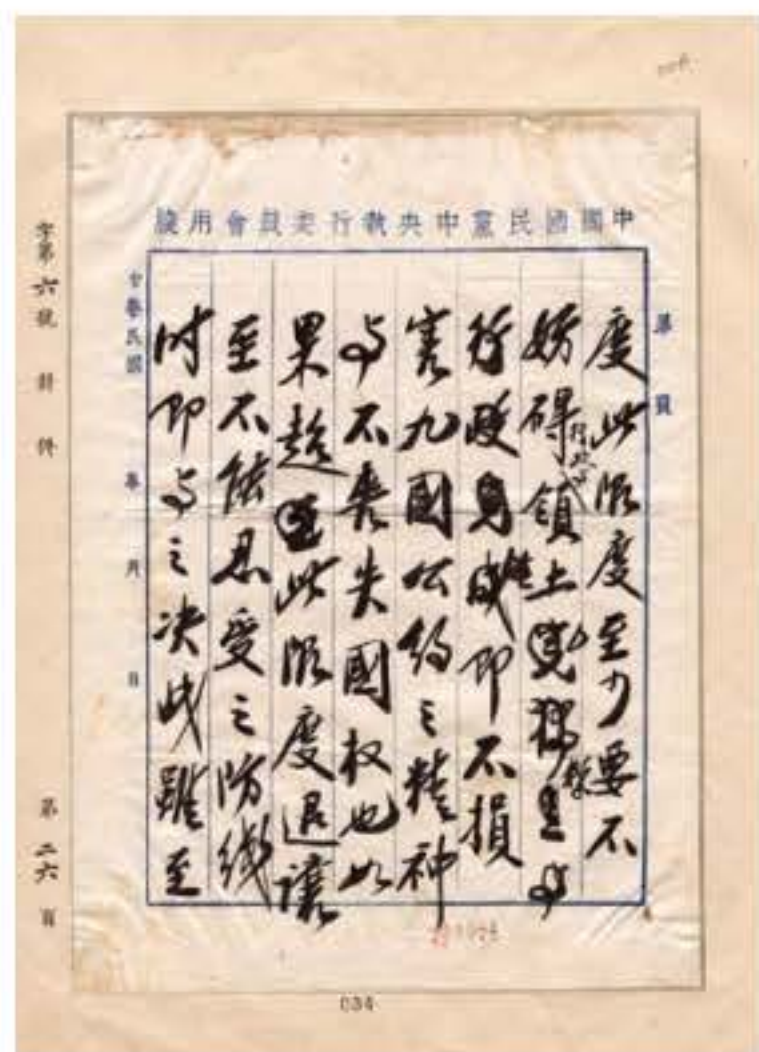 中國國民黨中央執行委員會用箋
第 頁
度此限度至少要不
妨碍領土 與
行政 即不損
害九國公約之精神
與不喪失國权也如
果超 此限度退讓
至不能忍受之防綫
时即与之决战雖至
中華民國 年 月 日
字第六號 件
第二六頁
034